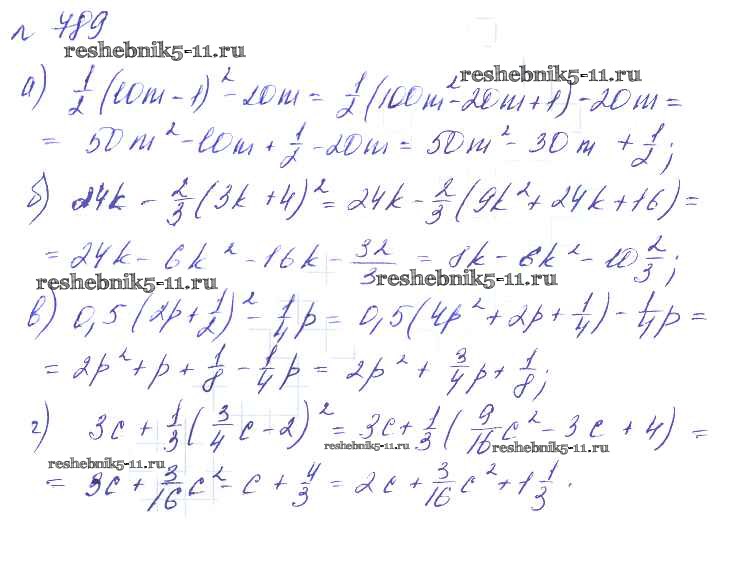 № 789
reshebnik5-11.ru
reshebnik5-11.ru
а) 1/2 (10m - 1)² - 20m = 1/2 (100m² - 20m + 1) - 20m =
= 50m² - 10m + 1/2 - 20m = 50m² - 30m + 1/2;
б) 24k - 2/3 (3k + 4)² = 24k - 2/3 (9k² + 24k + 16) =
= 24k - 6k² - 16k - 32/3 = 8k - 6k² - 10 2/3;
reshebnik5-11.ru
reshebnik5-11.ru
в) 0,5 (2p + 1/2)² - 1/4 p = 0,5 (4p² + 2p + 1/4) - 1/4 p =
= 2p² + p + 1/8 - 1/4 p = 2p² + 3/4 p + 1/8;
г) 3c + 1/3 (3/4 c - 2)² = 3c + 1/3 (9/16 c² - 3c + 4) =
reshebnik5-11.ru
reshebnik5-11.ru
reshebnik5-11.ru
= 3c + 3/16 c² - c + 4/3 = 2c + 3/16 c² + 1 1/3.